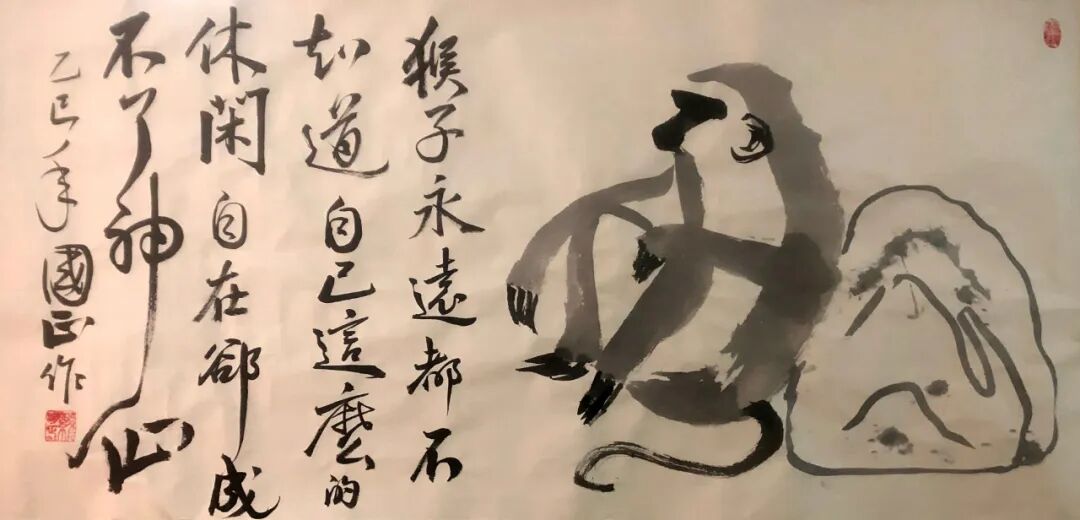 猴子永遠都不
知道自己這麼的
休閑自在卻成
不了神仙
乙巳年
國正作